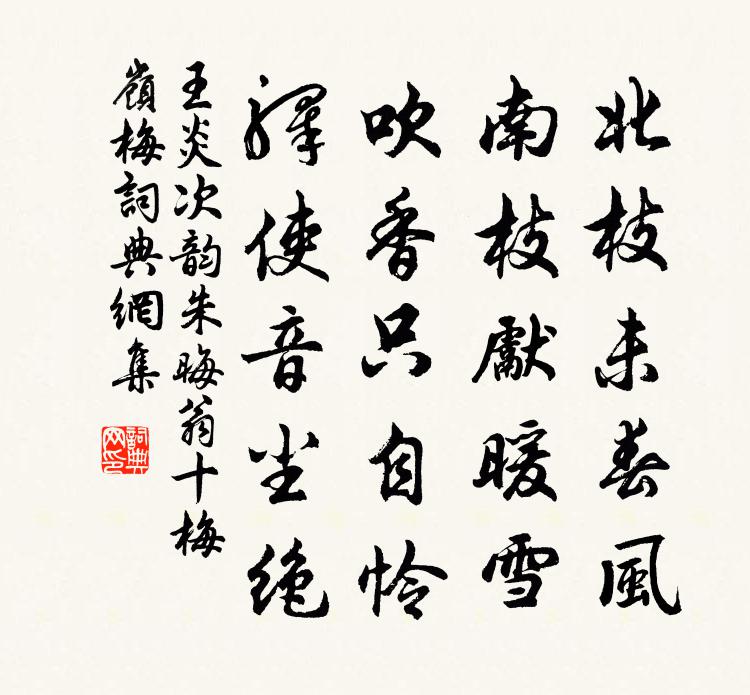 北枝未春風
南枝獻暖雪
吹香只自怜
驛使音尘絶
王炎次韵朱晦翁十梅
嶺梅詞典網集
詞典网印